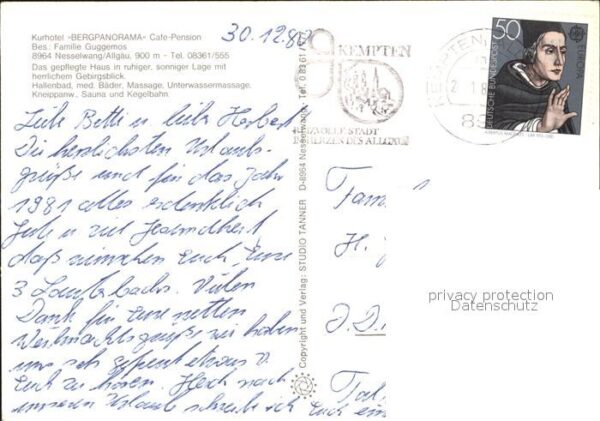 Kurhotel »BERGPANORAMA« Cafe-Pension
Bes.: Familie Guggemos
8964 Nesselwang/Allgäu, 900 m - Tel. 08361/555
Das gepflegte Haus in ruhiger, sonniger Lage mit
herrlichem Gebirgsblick.
Hallenbad, med. Bäder, Massage, Unterwassermassage,
Kneippanw., Sauna und Kegelbahn
30.12.80
Liebe Betti u. lieber Herbert
Die herzlichsten Urlaubs-
grüße und für das Jahr
1981 alles erdenklich
Gute u. viel Gesundheit
das wünschen Euch, Eure
3 Lauterbachs. Vielen
Dank für Eure netten
Weihnachtsgrüße wir haben
uns sehr gefreut etwas v.
Euch zu hören. Gleich nach
unserem Urlaub schreibe ich Euch ein
Copyright und Verlag: STUDIO TANNER D-8964 Nesselwang · Tel. 0 83 61
KEMPTEN
REIZVOLLE STADT
IM HERZEN DES ALLGÄUS
KEMPTEN
50
DEUTSCHE BUNDESPOST
EUROPA
Fam
H.
J. D.
privacy protection
Datenschutz